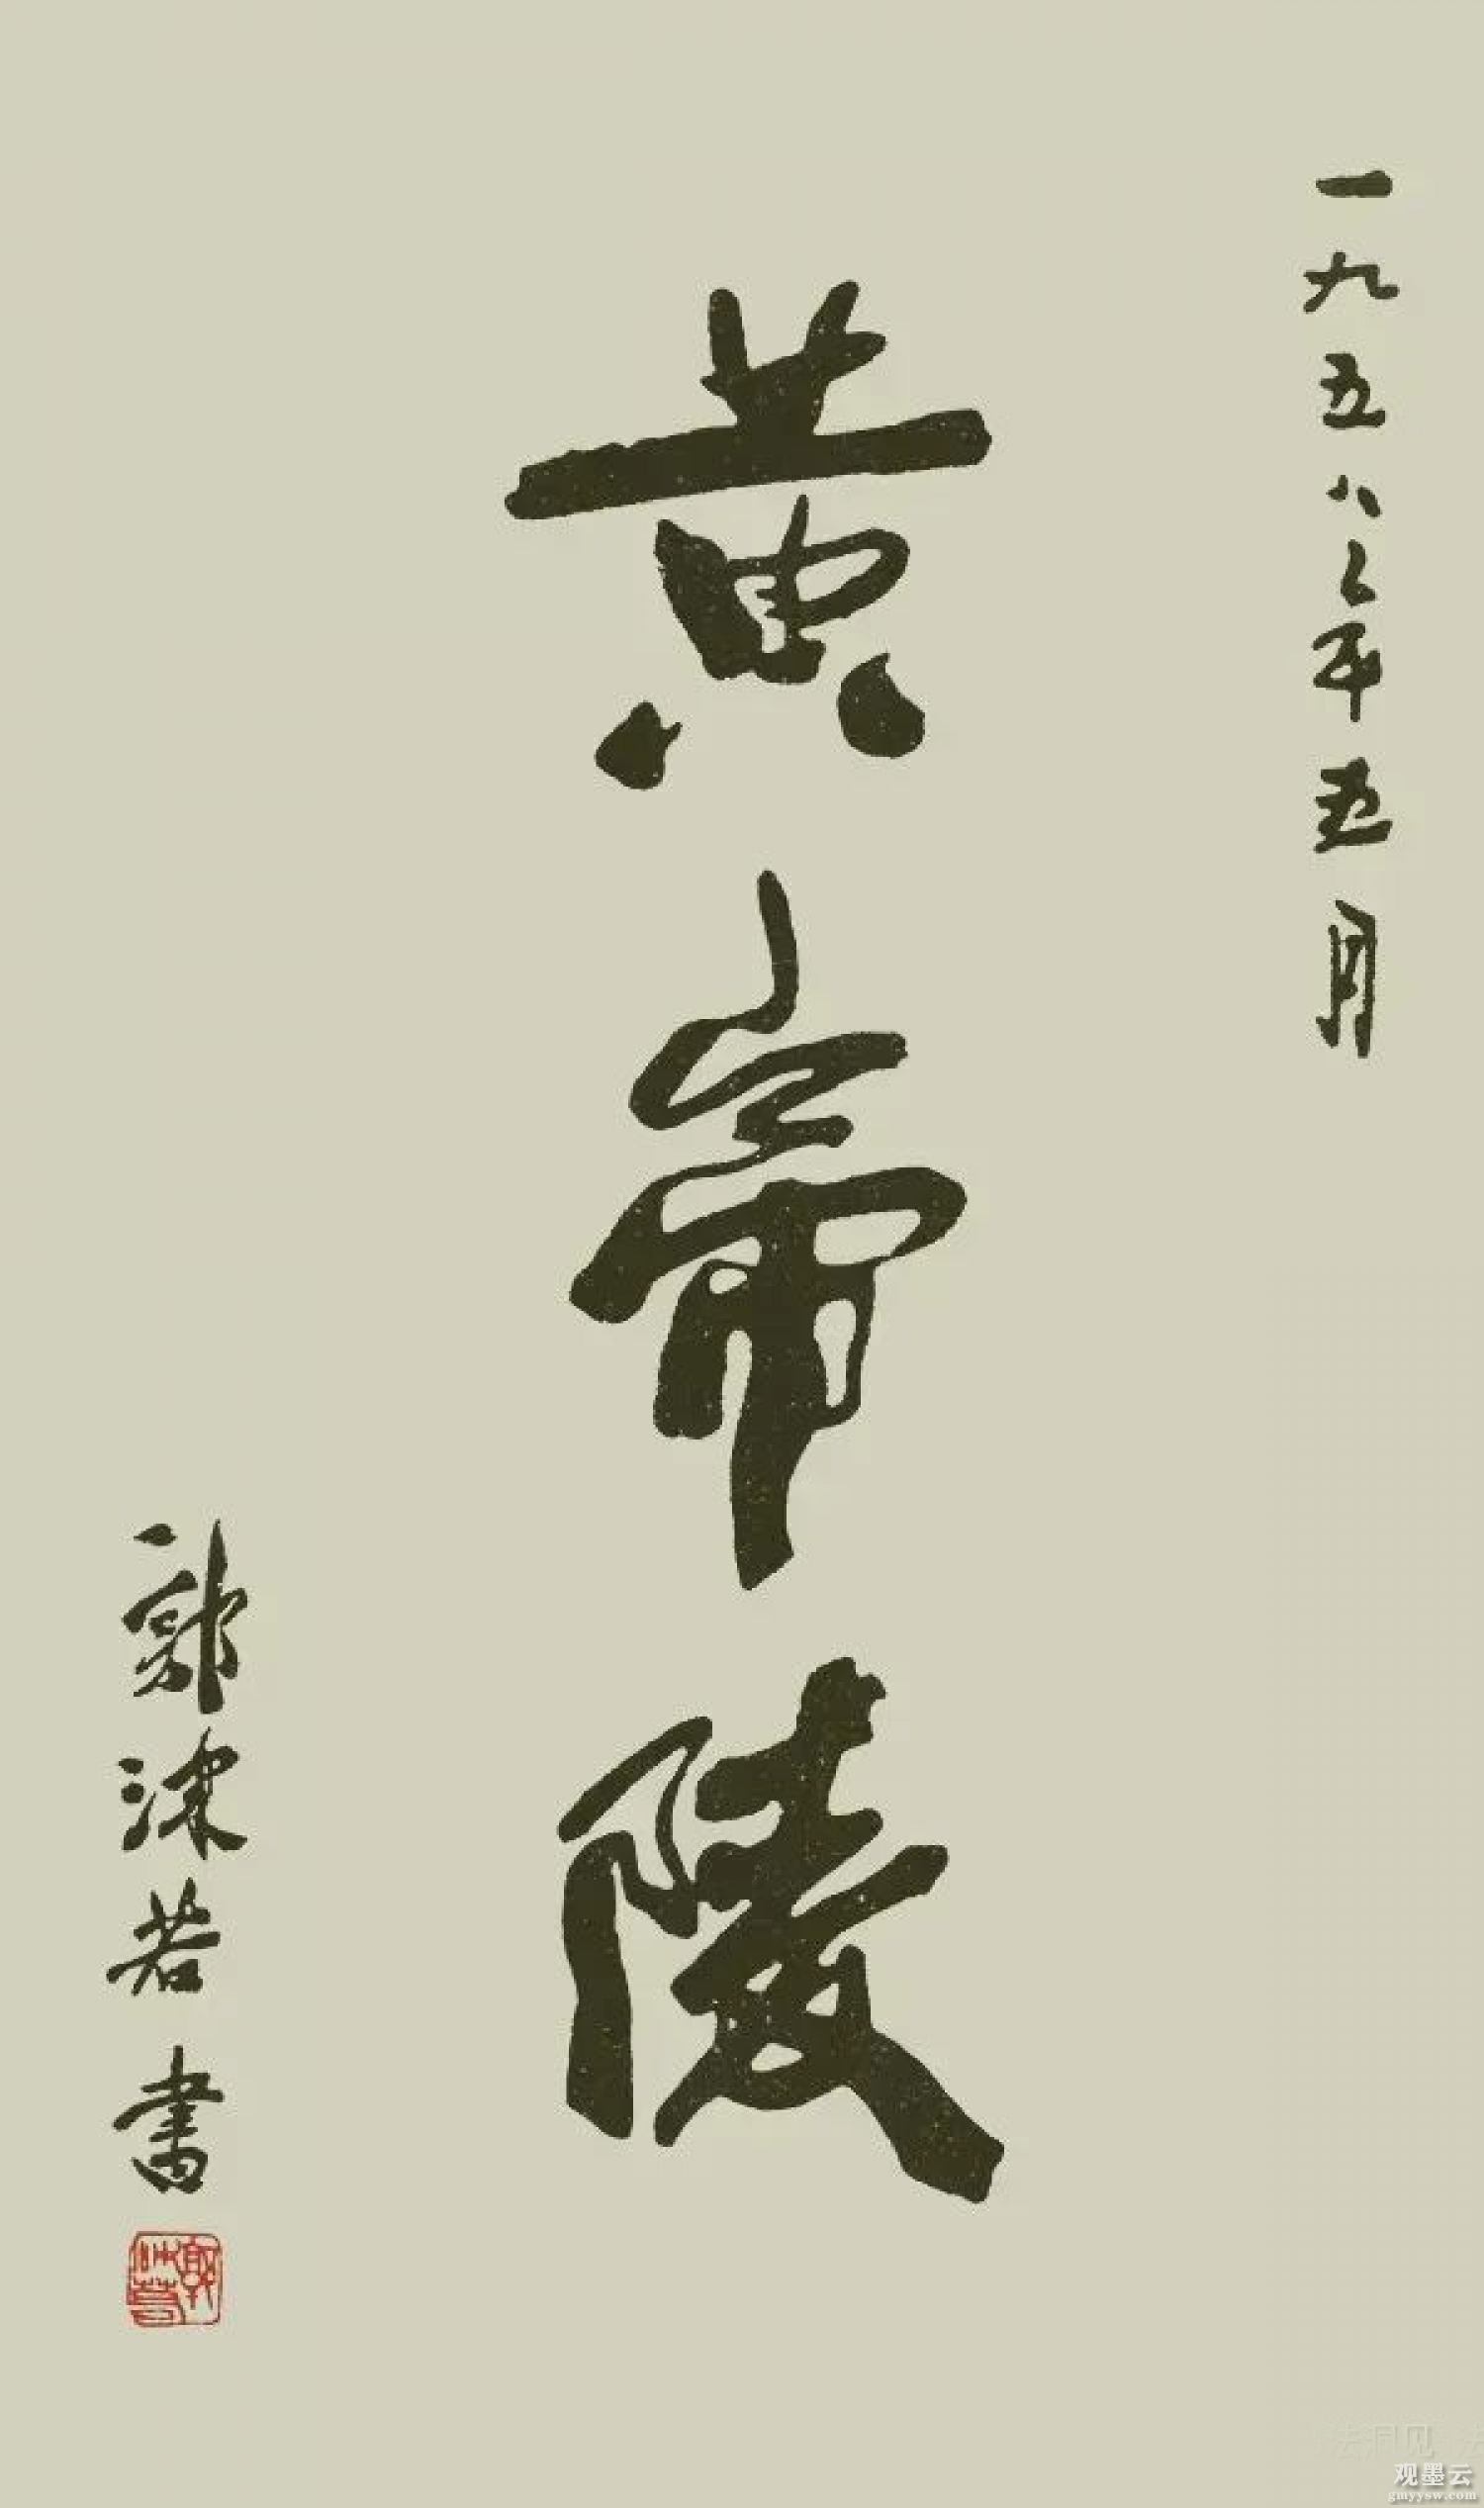 一九五八年五月
黄帝陵
郭沫若書
郭沫若
观墨云
gmyysw.com